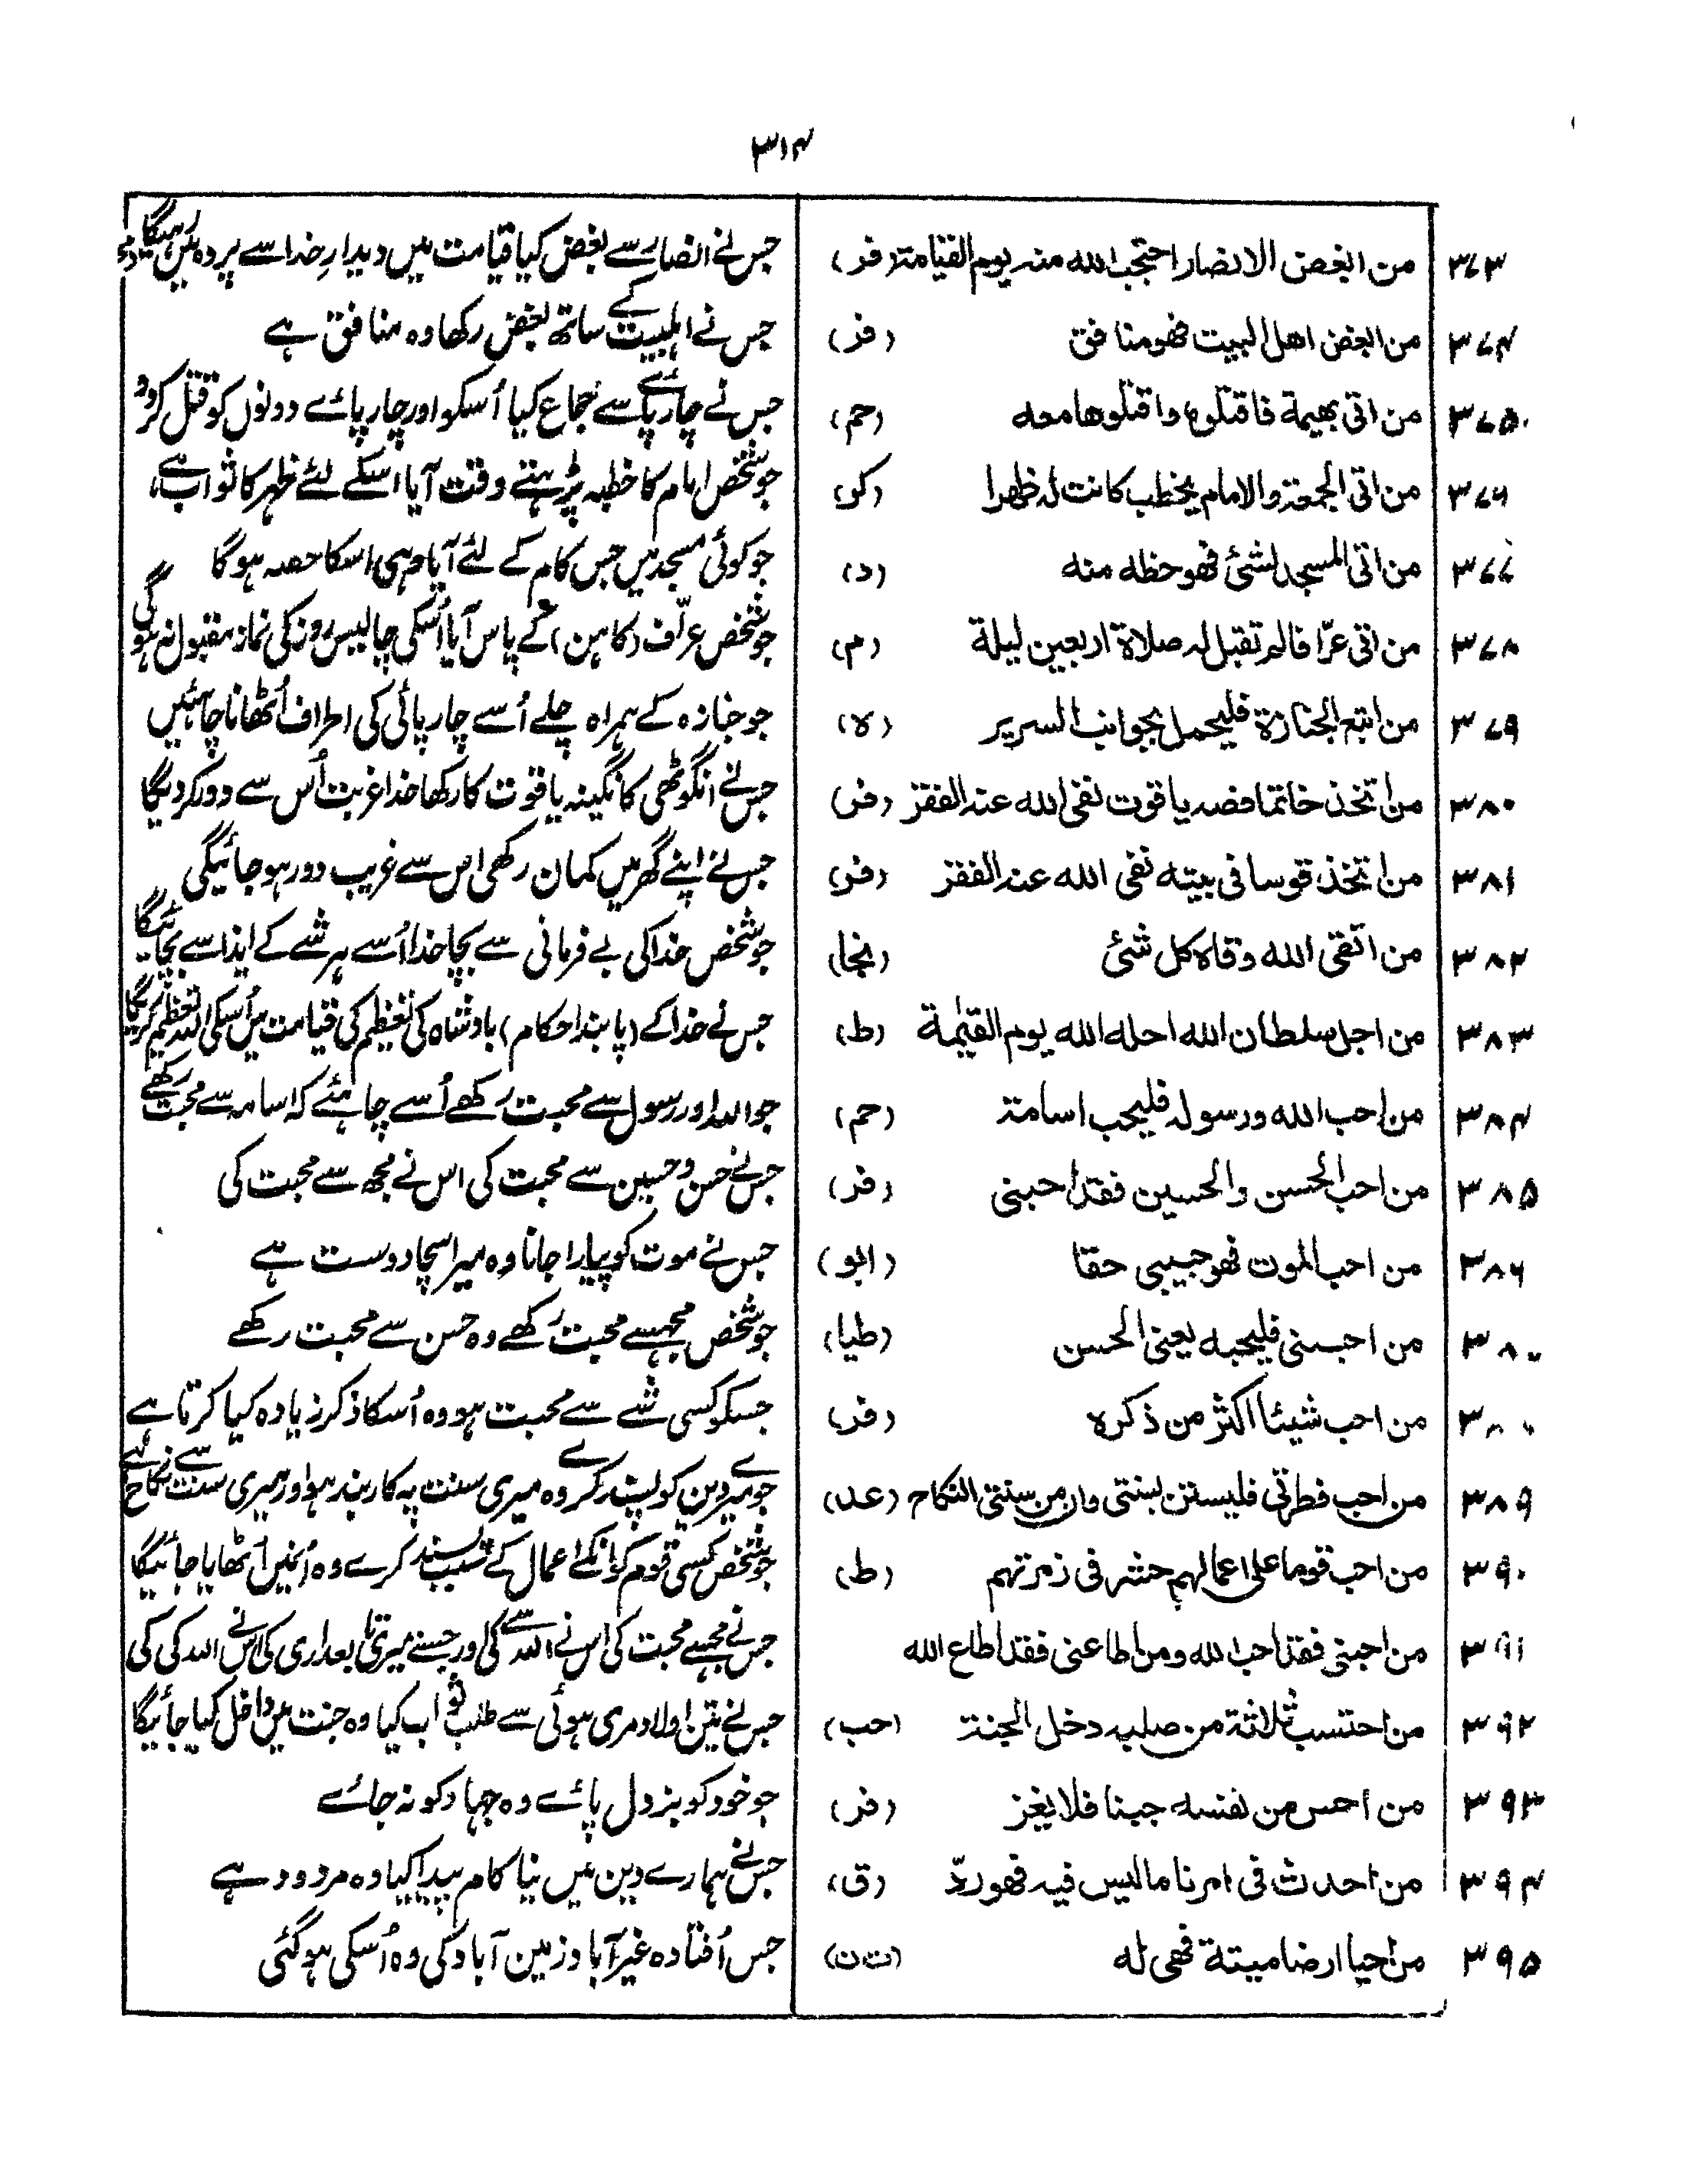 ۳۱۴
۳۷۳ من ابغض الانصار احتجب الله منه يوم القيامة (فر) جس نے انصار سے بغض کیا قیامت میں دیدارِ خدا سے پردہ میں رہیگا
۳۷۴ من ابغض اهل البيت فهو منافق (فر) جس نے اہلبیت کے ساتھ بغض رکھا وہ منافق ہے
۳۷۵ من اتى بهيمة فاقتلوه واقتلوها معه (حم) جس نے چارپائے سے جماع کیا اُسکو اور چارپائے دونوں کو قتل کردو
۳۷۶ من اتى الجمعة والامام يخطب كانت له ظهرا (كر) جو شخص امام کا خطبہ پڑہتے وقت آیا اسکے لئے ظہر کا ثواب ہے
۳۷۷ من اتى المسجد لشئ فهو حظه منه (د) جو کوئی مسجد میں جس کام کے لئے آیا وہی اسکا حصہ ہوگا
۳۷۸ من اتى عرّافا لم تقبل له صلاة اربعين ليلة (م) جو شخص عرّاف (کاہن) کے پاس آیا اُسکی چالیس روز کی نماز مقبول نہ ہوگی
۳۷۹ من اتبع الجنازة فليحمل بجوانب السرير (ه) جو جنازہ کے ہمراہ چلے اُسے چارپائی کی اطراف اُٹھانا چاہئیں
۳۸۰ من اتخذ خاتما فصه ياقوت نفى الله عنه الفقر (فر) جس نے انگوٹھی کا نگینہ یاقوت کا رکھا خدا غربت اُس سے دور کردیگا
۳۸۱ من اتخذ قوسا فى بيته نفى الله عنه الفقر (فر) جس نے اپنے گھر میں کمان رکھی اس سے غریب دور ہوجائیگی
۳۸۲ من اتقى الله وقاه كل شئ (نجا) جو شخص خدا کی بے فرمانی سے بچا خدا اُسے ہر شے کے ایذا سے بچائیگا
۳۸۳ من اجل سلطان الله احله الله يوم القيٰمة (ط) جس نے خدا کے (پابند احکام) بادشاہ کی تعظیم کی قیامت میں اُسکی اللہ تعظیم کریگا
۳۸۴ من احب الله ورسوله فليحب اسامة (حم) جو اللہ اور رسول سے محبت رکھے اُسے چاہئے کہ اسامہ سے محبت رکھے
۳۸۵ من احب الحسن والحسين فقد احبنى (فر) جس نے حسن و حسین سے محبت کی اس نے مجھ سے محبت کی
۳۸۶ من احب الموت فهو حبيبى حقا (ابو) جس نے موت کو پیارا جانا وہ میرا سچا دوست ہے
۳۸ من احبنى فليحبه يعنى الحسن (طيا) جو شخص مجہسے محبت رکھے وہ حسن سے محبت رکھے
۳۸ من احب شيئا اكثر من ذكره (فر) جسکو کسی شے سے محبت ہو وہ اُسکا ذکر زیادہ کیا کرتا ہے
۳۸۹ من احب فطرتى فليستن بسنتى وان من سنتى النكاح (عد) جو میرے دین کو پسند کرے وہ میری سنت پہ کاربند ہو اور میری سنت سے نکاح ہے
۳۹۰ من احب قوما على اعمالهم حشر فى زمرتهم (ط) جو شخص کسی قوم کو انکے اعمال کے سبب پسند کرے وہ اُنہیں اُٹھایا جائیگا
۳۹۱ من احبنى فقد احب الله ومن اطاعنى فقد اطاع الله جس نے مجہسے محبت کی اس نے اللہ سے کی اور جسنے میری تابعداری کی اس نے اللہ کی کی
۳۹۲ من احتسب ثلاثة من صلبه دخل الجنة (حب) جس نے تین اولاد مری ہوئی سے طلب ثواب کیا وہ جنت میں داخل کیا جائیگا
۳۹۳ من احس من نفسه جبنا فلا يغز (فر) جو خود کو بزدل پائے وہ جہاد کو نہ جائے
۳۹۴ من احدث فى امرنا ما ليس فيه فهو ردّ (ق) جس نے ہمارے دین میں نیا کام پیدا کیا وہ مردود ہے
۳۹۵ من احيا ارضا ميتة فهى له (ت ن) جس اُفتادہ غیر آباد زمین آباد کی وہ اُسکی ہوگئی